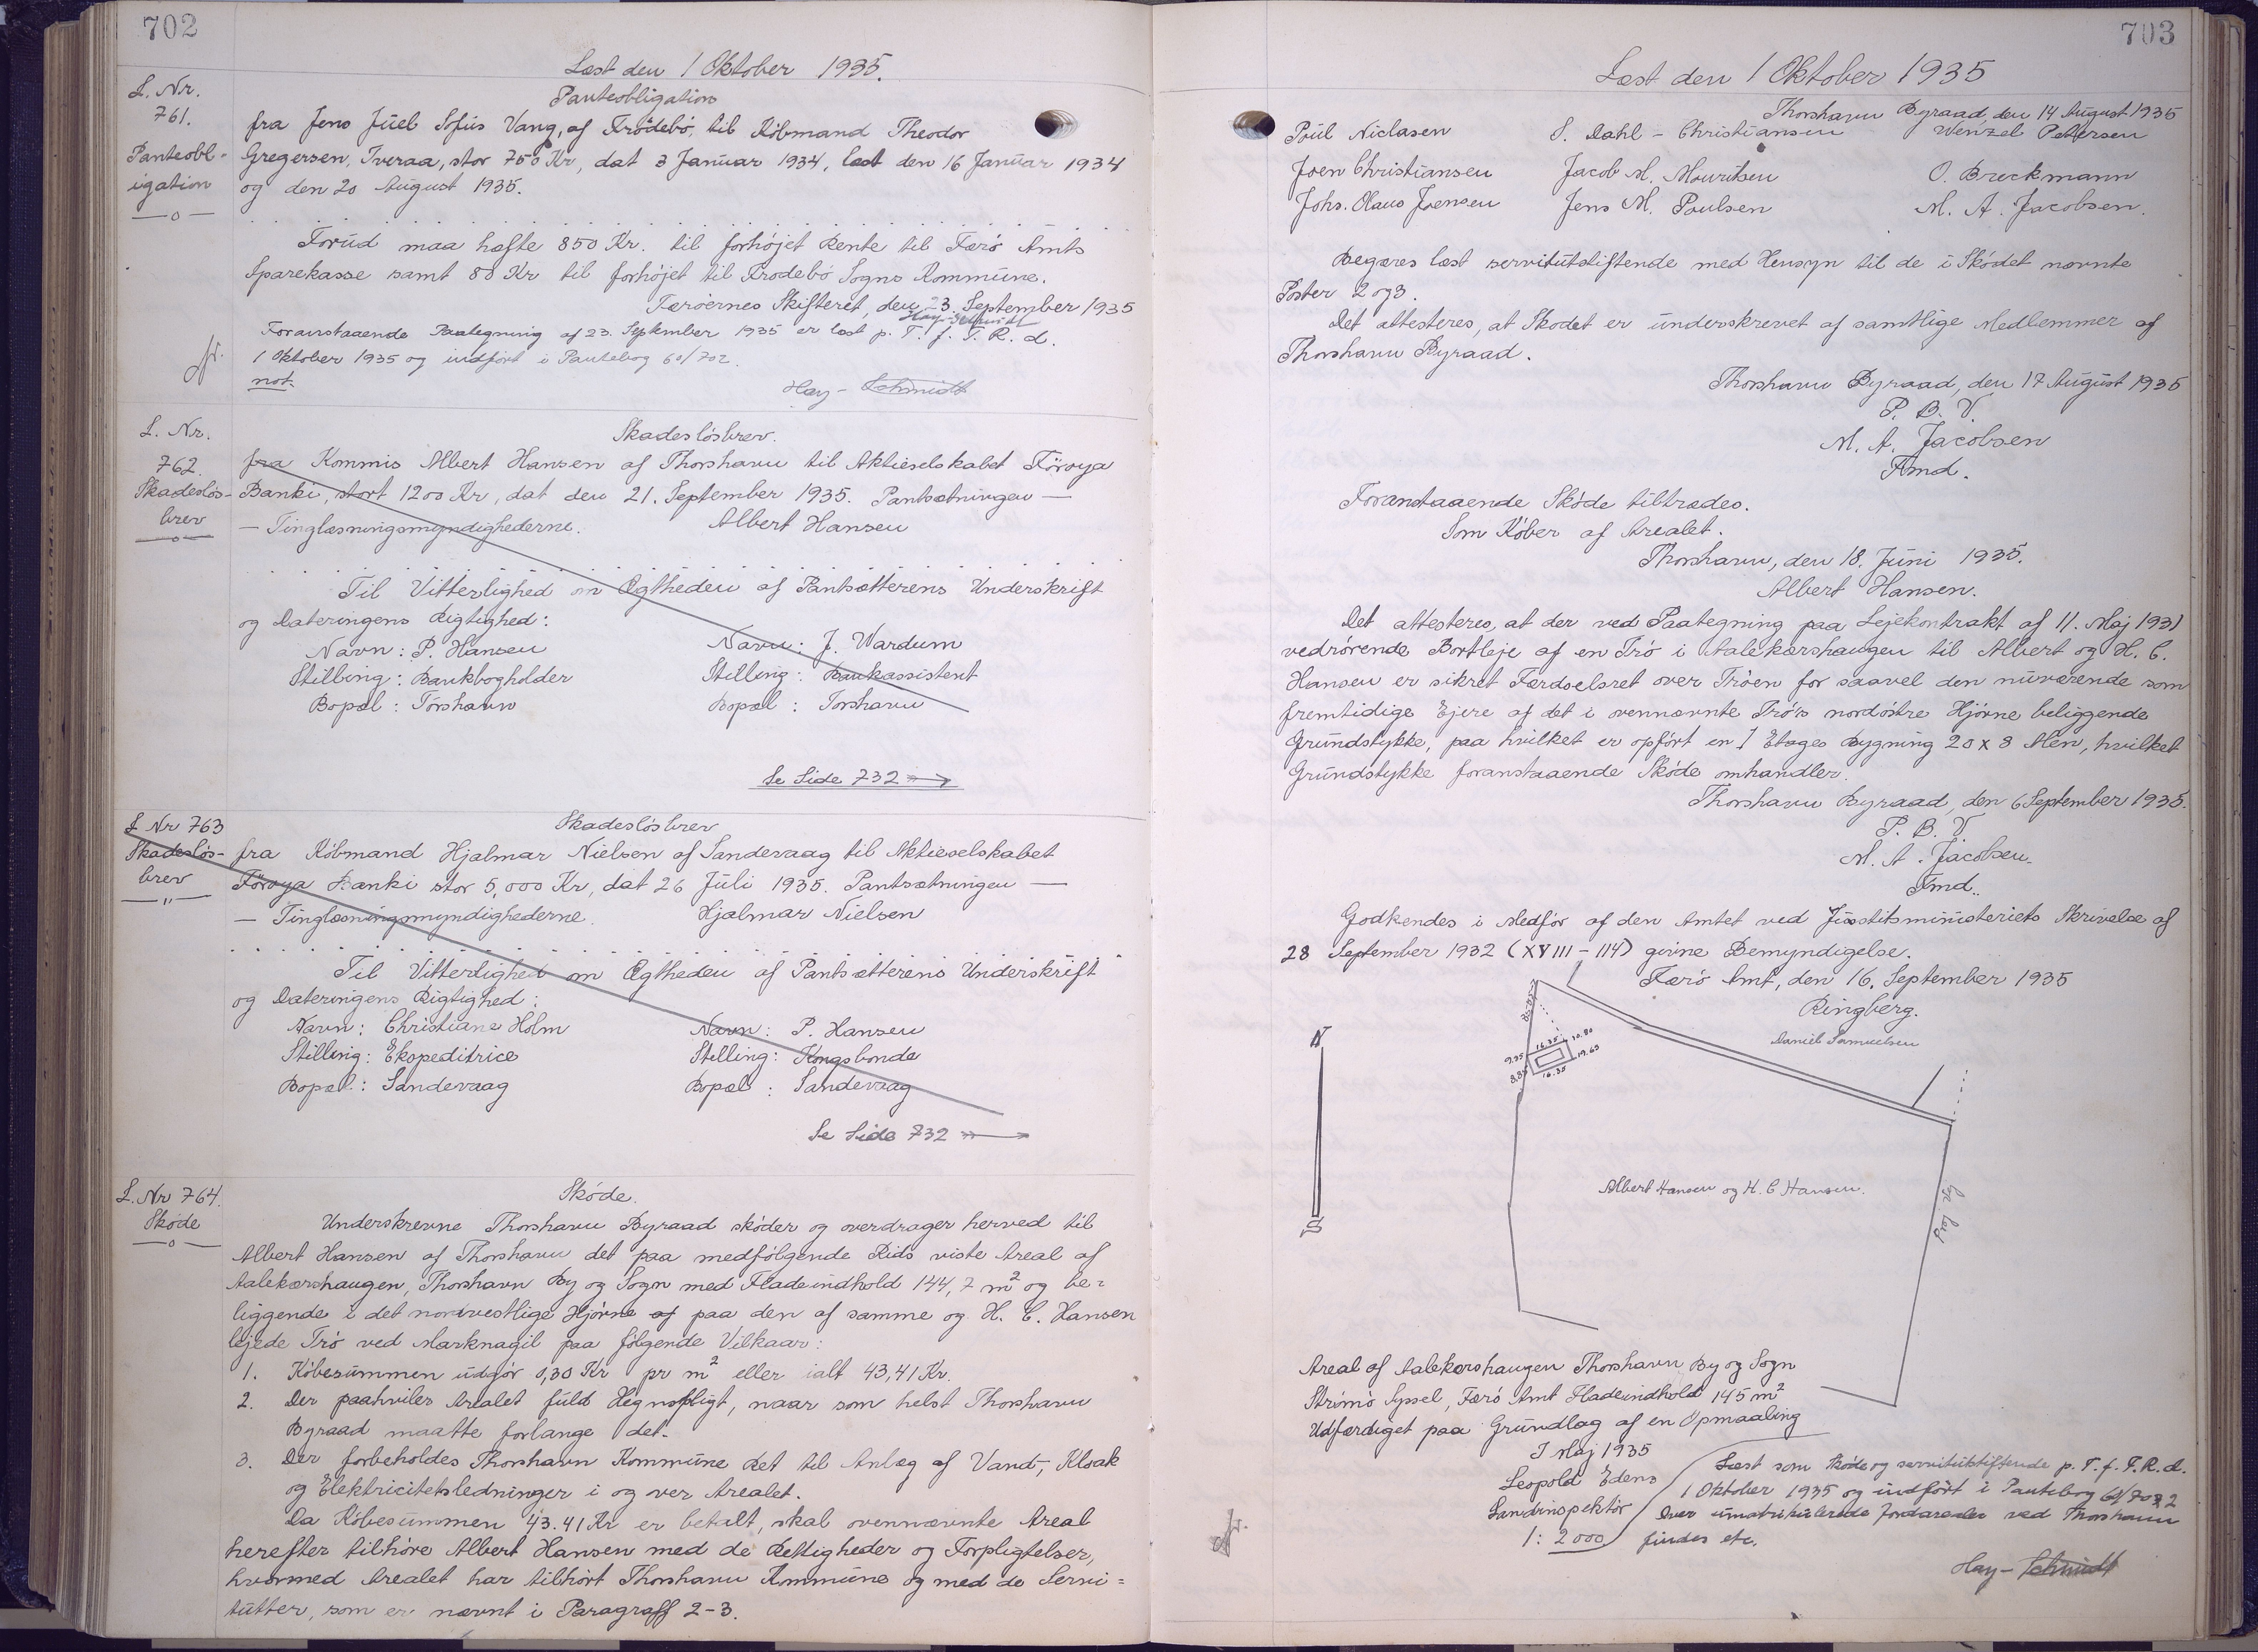 702
Læst den 1 Oktober 1935.
L. Nr.
761.
Panteobl-
igation
Panteobligation
fra Jens Juel Sofus Vang, af Frödebö, til Köbmand Theodor
Gregersen, Tveraa, stor 750 Kr, dat 3 Januar 1934, læst den 16 Januar 1934
og den 20 August 1935.
Forud maa hæfte 850 Kr. til forhöjet Rente til Færö Amts
Sparekasse samt 88 Kr til forhöjet til Frodebö Sogns Kommune.
Færöernes Skifteret, den 23. September 1935
Hay-Schmidt
Foranstaaende Paategning af 23. September 1935 er læst p. T. f. F. R. d.
1 Oktober 1935 og indført i Pantebog 60/702.
not.
Hay-Schmidt
L. Nr.
762.
Skadeslös-
brev
Skadeslösbrev.
fra Kommis Albert Hansen af Thorshavn til Aktieselskabet Föroya
Banki, stort 1200 Kr, dat den 21. September 1935. Pantsætningen —
— Tinglæsningsmyndighederne. Albert Hansen
Til Vitterlighed om Ægtheden af Pantsætterens Underskrift
og Dateringens Rigtighed:
Navn: P. Hansen Navn: J. Wardum
Stilling: Bankbogholder Stilling: Bankassistent
Bopæl: Torshavn Bopæl: Torshavn
Se Side 732
L Nr 763
Skadeslös-
brev
Skadeslösbrev
fra Köbmand Hjalmar Nielsen af Sandevaag til Aktieselskabet
Föroya Banki stor 5,000 Kr, dat 26 Juli 1935. Pantsætningen —
— Tinglæsningsmyndighederne. Hjalmar Nielsen
Til Vitterlighed om Ægtheden af Pantsætterens Underskrift
og Dateringens Rigtighed:
Navn: Christiane Holm Navn: P. Hansen
Stilling: Ekspeditrice Stilling: Kongsbonde
Bopæl: Sandevaag Bopæl: Sandevaag
Se Side 732
L. Nr 764.
Skøde
Skøde.
Underskrevne Thorshavn Byraad skøder og overdrager herved til
Albert Hansen af Thorshavn det paa medfølgende Rids viste Areal af
Aalekærshaugen, Thorshavn By og Sogn med Fladeindhold 144,7 m² og be=
liggende i det nordvestlige Hjörne af paa den af samme og H. C. Hansen
lejede Trö ved Marknagil paa følgende Vilkaar:
1. Köbesummen udgör 0,30 Kr pr m² eller ialt 43,41 Kr.
2. Der paahviler Arealet fuld Hegnspligt, naar som helst Thorshavn
Byraad maatte forlange det.
3. Der forbeholdes Thorshavn Kommune Ret til Anlæg af Vand-, Kloak
og Elektricitetsledninger i og over Arealet.
Da Köbesummen 43.41 Kr er betalt, skal ovennævnte Areal
herefter tilhöre Albert Hansen med de Rettigheder og Forpligtelser,
hvormed Arealet har tilhört Thorshavn Kommune og med de Servi=
tutter, som er nævnt i Paragraff 2-3.
703
Læst den 1 Oktober 1935
Thorshavn Byraad, den 14 August 1935
Poul Niclasen S. Dahl-Christiansen Wenzel Petersen
Joen Christiansen Jacob M. Mouritsen O. Breckmann
Johs. Olaus Joensen Jens M. Poulsen M. A. Jacobsen.
Begæres læst servitutstiftende med Hensyn til de i Skødet nævnte
Poster 2 og 3.
Det attesteres, at Skødet er underskrevet af samtlige Medlemmer af
Thorshavn Byraad.
Thorshavn Byraad, den 17 August 1935
P. B. V.
M. A. Jacobsen
Fmd.
Foranstaaende Skøde tiltrædes.
Som Köber af Arealet.
Thorshavn, den 18. Juni 1935.
Albert Hansen.
Det attesteres, at der ved Paategning paa Lejekontrakt af 11. Maj 1931
vedrörende Bortleje af en Trö i Aalekærshaugen til Albert og H. C.
Hansen er sikret Færdselsret over Tröen for saavel den nuværende som
fremtidige Ejere af det i ovennævnte Trö's nordöstre Hjörne beliggende
Grundstykke, paa hvilket er opfört en 1 Etages Bygning 20 x 8 Alen, hvilket
Grundstykke foranstaaende Skøde omhandler.
Thorshavn Byraad, den 6 September 1935.
P. B. V.
M. A. Jacobsen.
Fmd.
Godkendes i Medför af den Amtet ved Justitsministeriets Skrivelse af
28 September 1932 (XVIII-114) givne Bemyndigelse.
Færö Amt, den 16. September 1935
Ringberg.
Daniel Samuelsen
N
16.35
10.80
9.35
19.63
8.85
16.35
Albert Hansen og H. C Hansen.
S
Areal af Aalekærshaugen Thorshavn By og Sogn
Strömö Syssel, Færö Amt Fladeindhold 145 m²
Udfærdiget paa Grundlag af en Opmaaling
I Maj 1935
Leopold Edens
Landinspektör
1: 2000
Læst som Skøde og servitutstiftende p. T. f. F. R. d.
1 Oktober 1935 og indfört i Pantebog 60/702
Over umatrikulerede Jordarealer ved Thorshavn
findes etc.
Hay-Schmidt